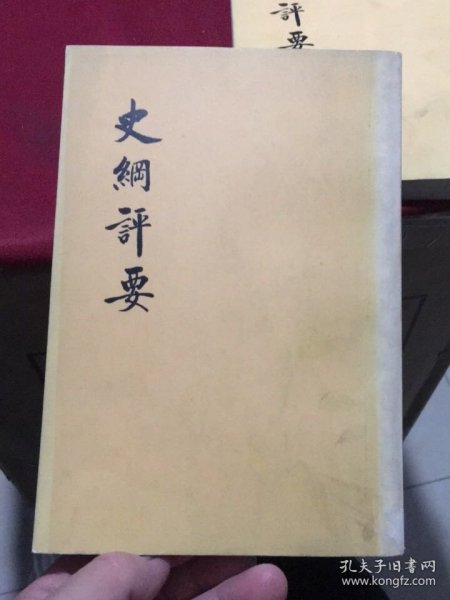 史綱評要
評要
孔夫子旧书网
www.kongfz.com